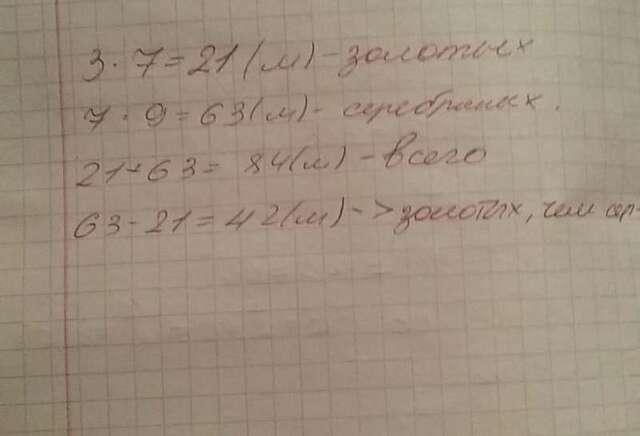 3 · 7 = 21 (м) - золотых
7 · 9 = 63 (м) - серебряных.
21 + 63 = 84 (м) - всего
63 - 21 = 42 (м) -> золотых, чем сер-